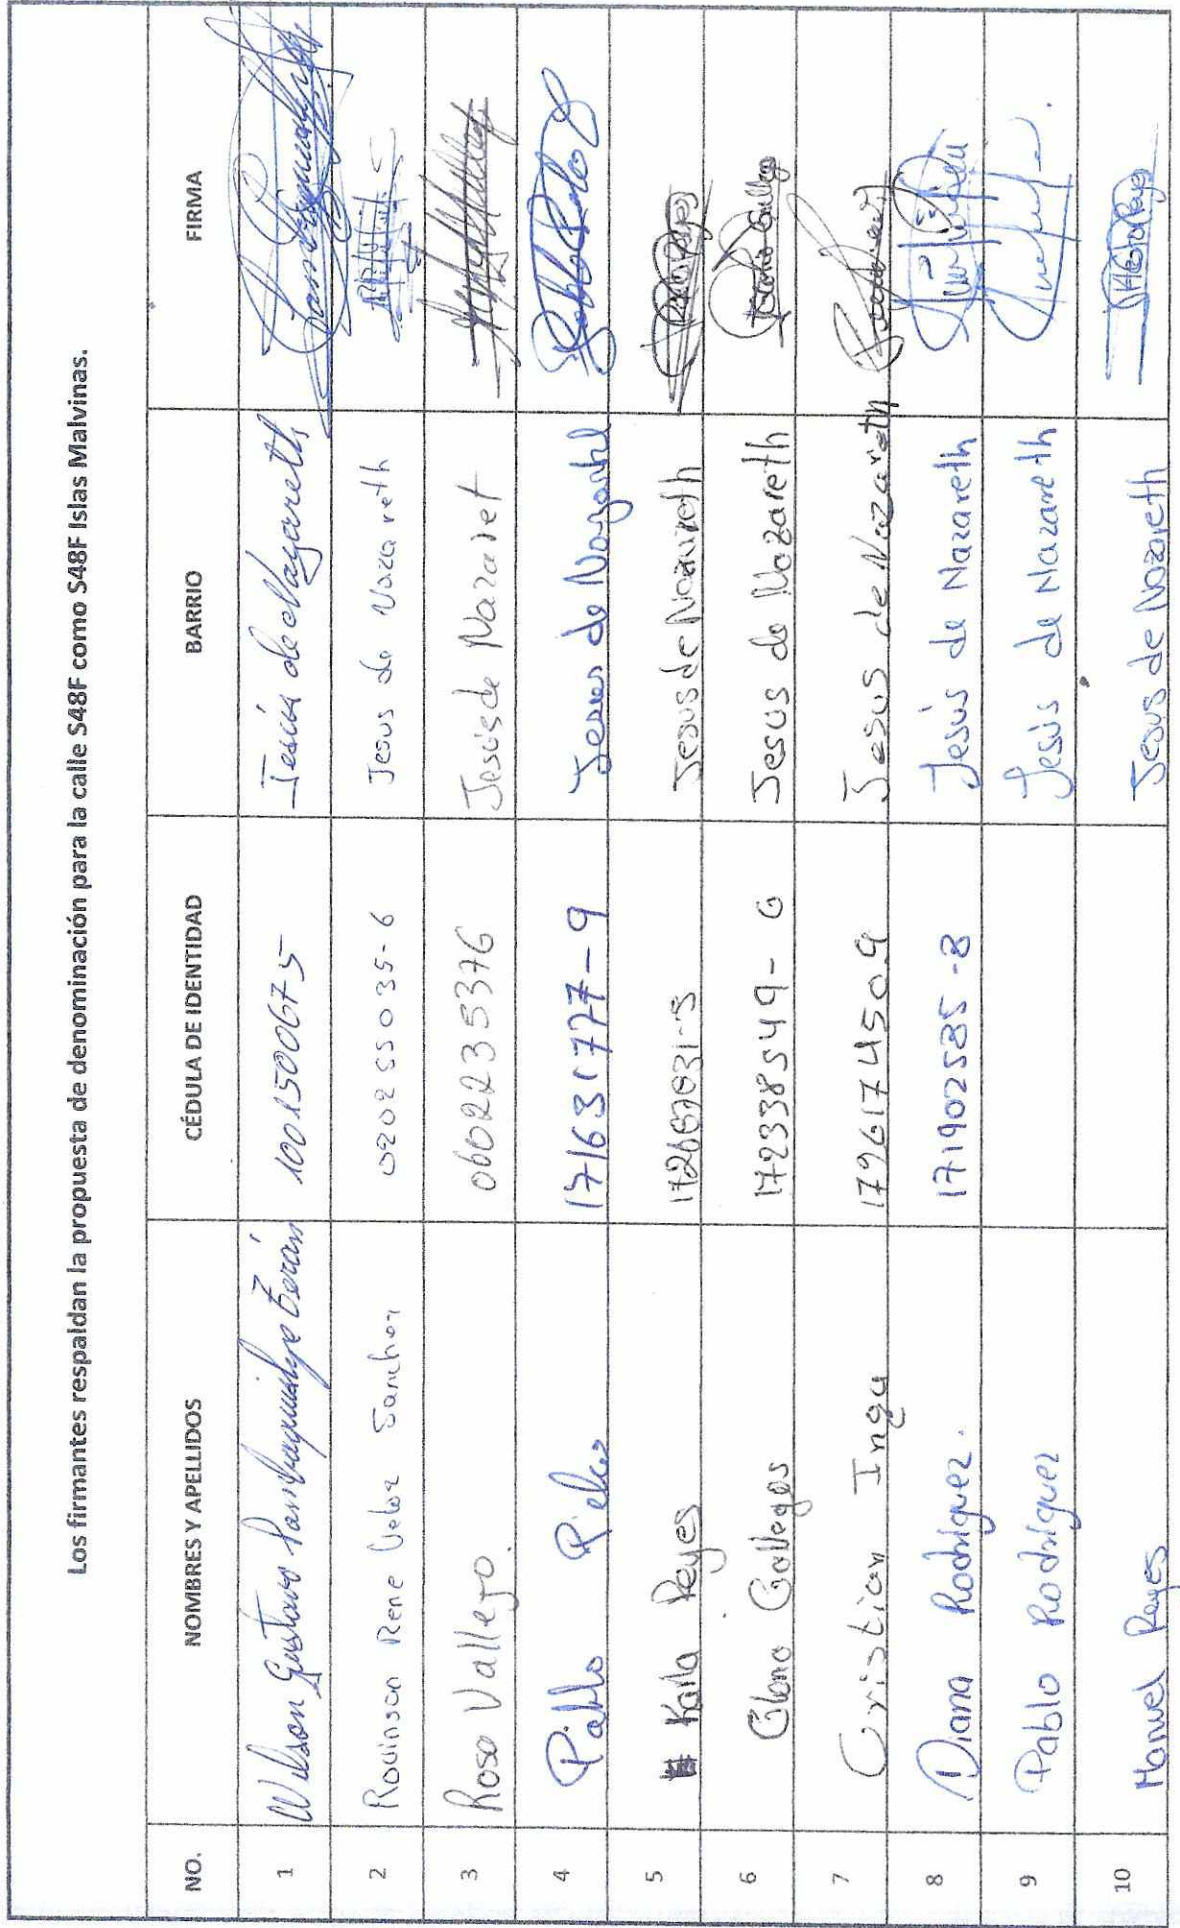 Los firmantes respaldan la propuesta de denominación para la calle S48F como S48F Islas Malvinas.
NO. NOMBRES Y APELLIDOS CÉDULA DE IDENTIDAD BARRIO FIRMA
1 Wilson Gustavo 1001500675 Jesús de Nazareth
2 Rovinson Rene Veloz Sanchez 020255035-6 Jesus de Nazareth
3 Rosa Vallejo. 0602235376 Jesús de Nazaret
4 Pablo 171631777-9 Jesus de
5 Karla Reyes Jesus de Nazareth
6 Gallegos 172338549-0 Jesus de Nazareth
7 Cristian Inga Jesus de Nazareth
8 Diana Rodriguez. 171902585-8 Jesús de Nazareth
9 Pablo Rodríguez Jesús de Nazareth
10 Manuel Reyes Jesus de Nazareth